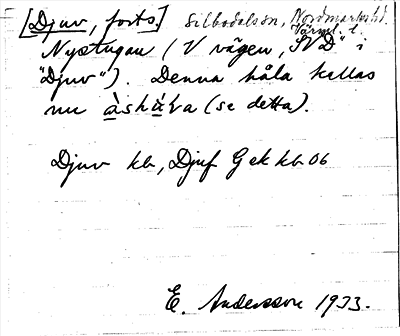 [Djuv, forts.] Silbodals sn, Nordmarks hd.
Värml. l.
Nystugan (V vägen, "SVD" i
"Djuv"). Denna håla kallas
nu åshåva (se detta).
Djuv kb, Djuf Gek kb 06
E. Andersson 1933.